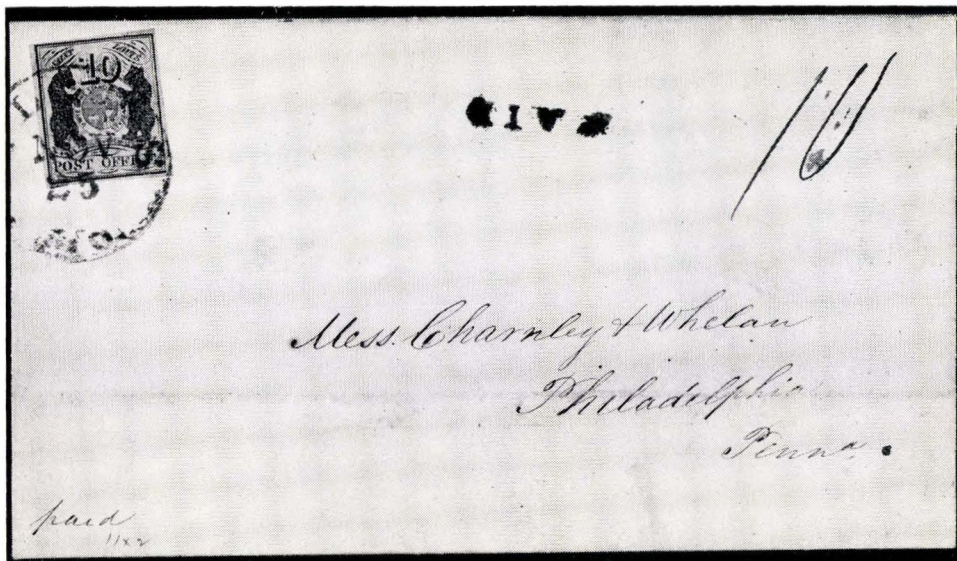 10
POST OFFI
PAID
10
Mess. Charnley & Whelan
Philadelphia
Penna.
paid
11x2